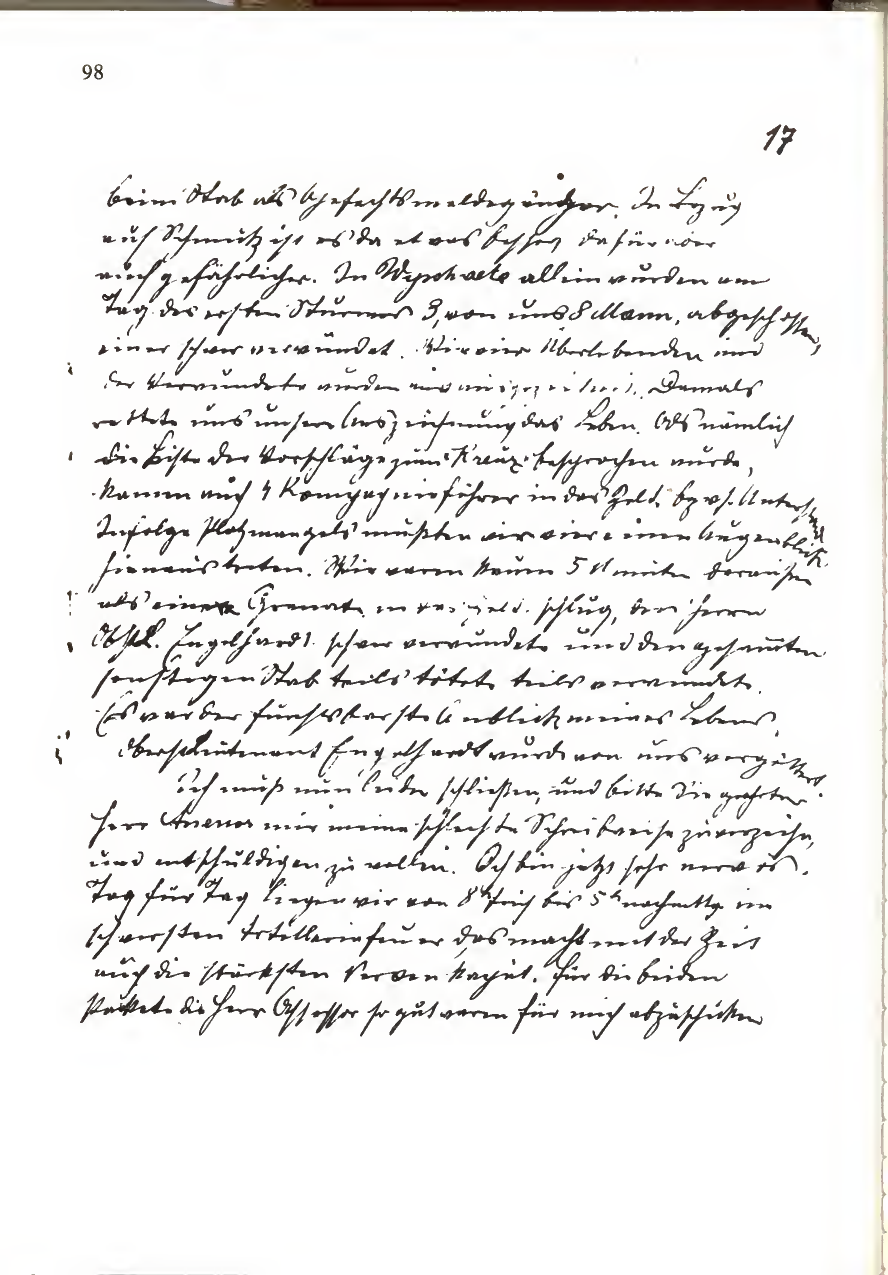 98
17
beim Stab als Gefechtsmeldegänger. In Bezug
auf Schmutz ist es da etwas besser dafür aber
auch gefährlicher. In Wytschaete allein wurden am
Tag des ersten Sturmes 3, von uns 8 Mann, abgeschossen,
einer schwer verwundet. Wir vier Überlebenden und
der Verwundete wurden nun ausgezeichnet. Damals
rettete uns unsere Auszeichnung das Leben. Als nämlich
die Liste der Vorschläge zum Kreuz besprochen wurde,
kamen auch 4 Kompagnieführer in das Zelt bzw. Unterstand
Infolge Platzmangels mußten wir vier einen Augenblick
hinaustreten. Wir waren kaum 5 Minuten draussen
als eine Granate in das Zelt schlug, den Herrn
Obstl. Engelhardt schwer verwundete und den gesamten
sonstigen Stab teils tötete teils verwundete.
Es war der furchtbarste Anblick meines Lebens.
Oberstleutnant Engelhardt wurde von uns vergöttert.
Ich muß nun leider schließen, und bitte Sie geehrter
Herr Assessor mir meine schlechte Schreibweise zu verzeihn,
und entschuldigen zu wollen. Ich bin jetzt sehr nervös.
Tag für Tag liegen wir von 8h früh bis 5h nachmttg im
schwersten Artilleriefeuer das macht mit der Zeit
auch die stärksten Nerven kaput. Für die beiden
Pakete die Herr Assessor so gut waren für mich abzuschicken